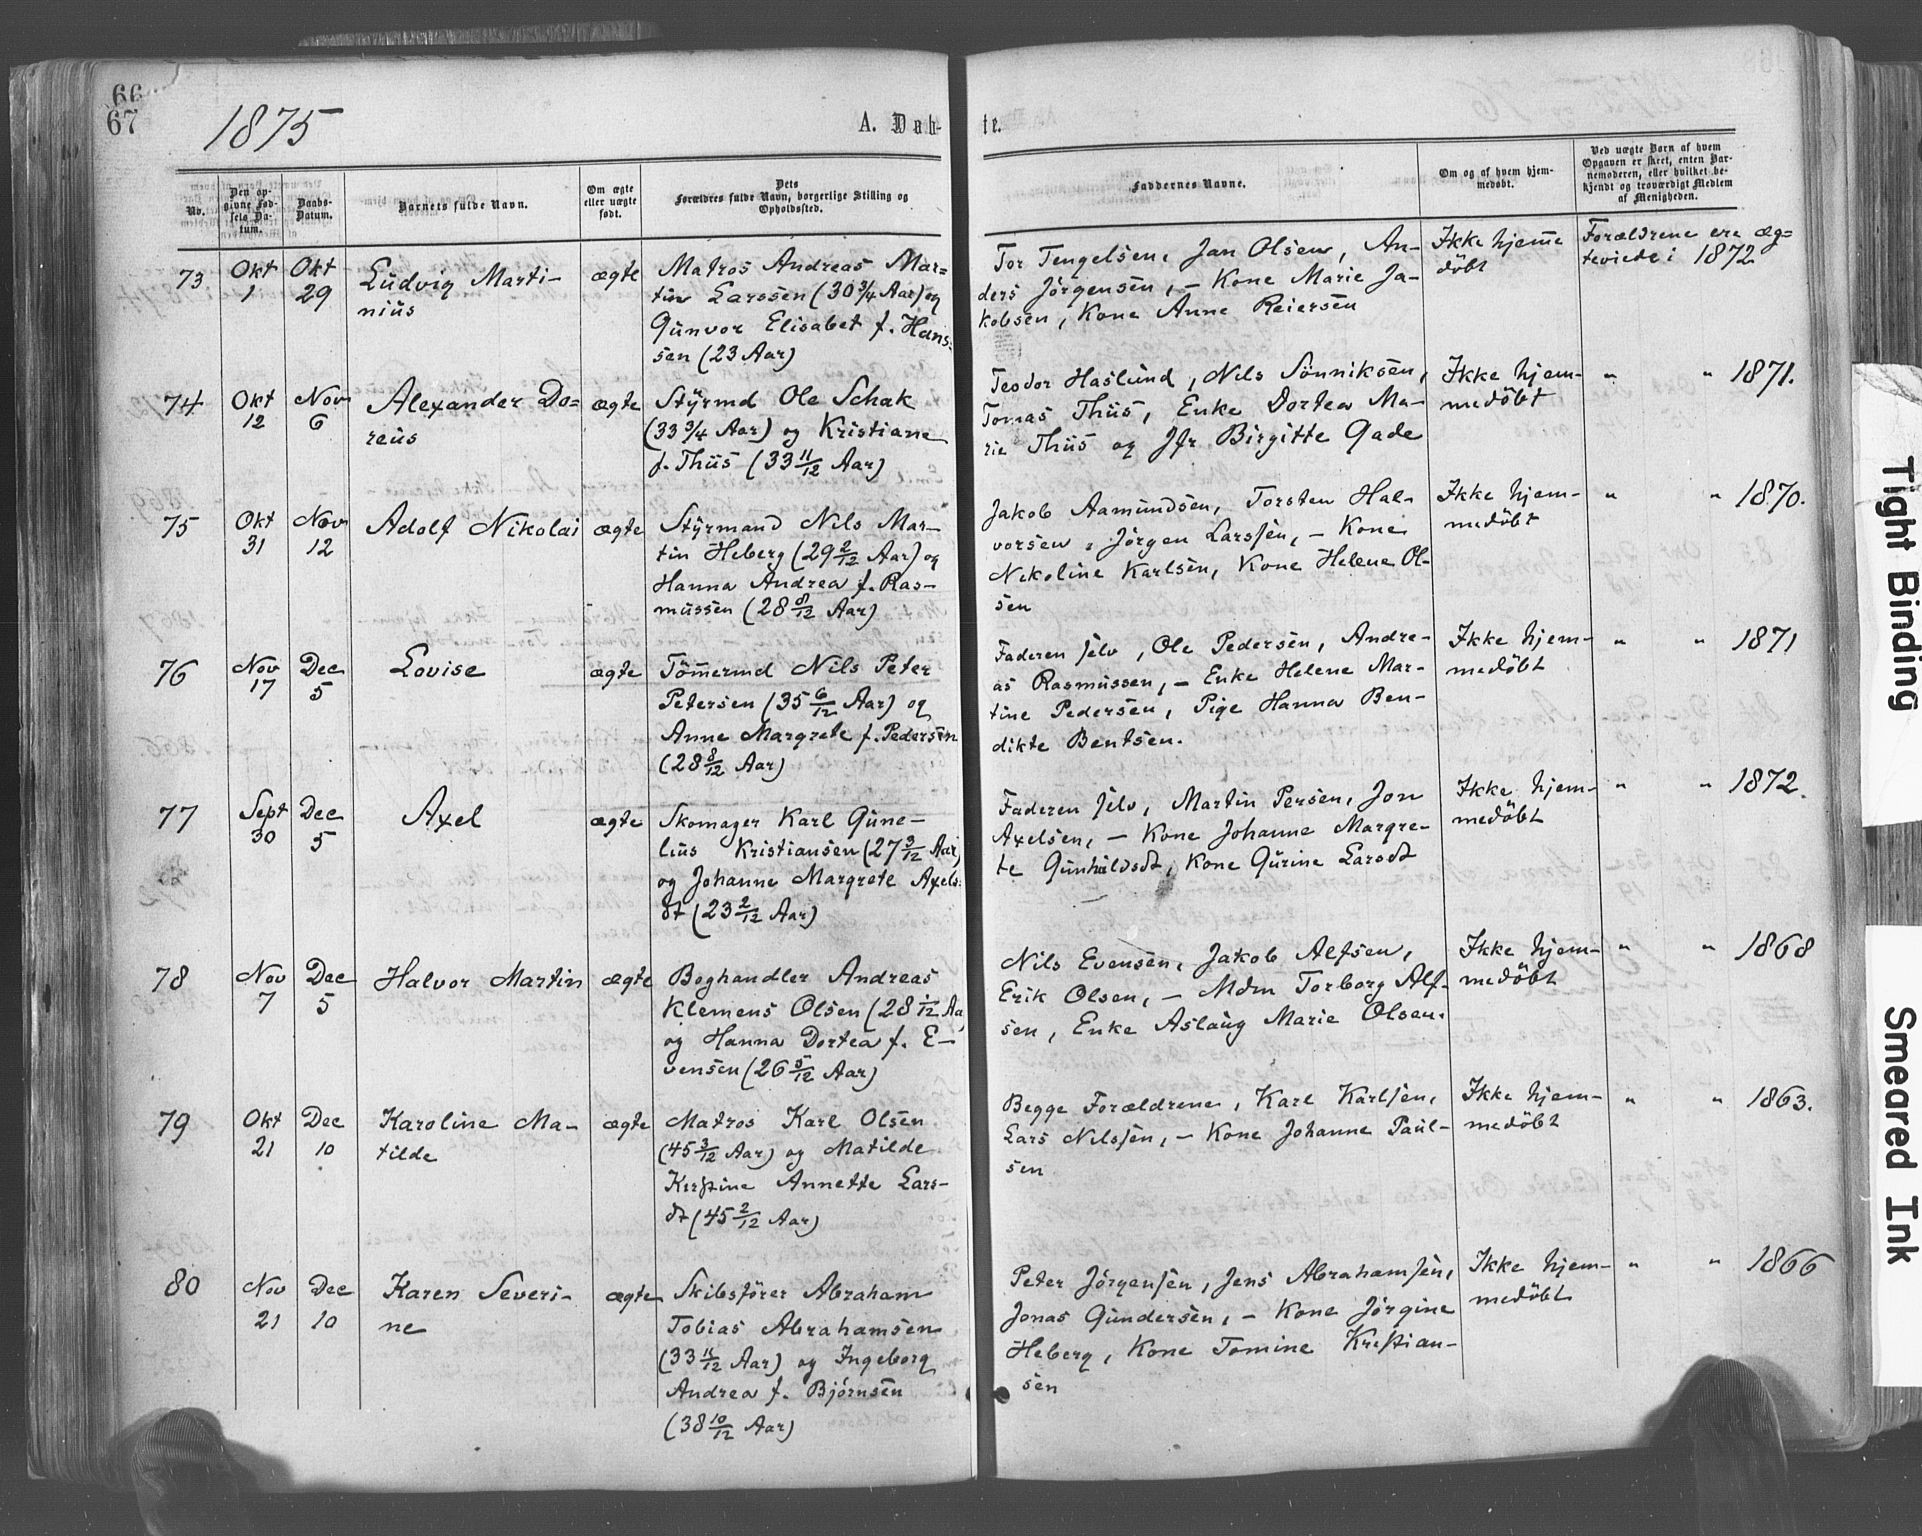 66
67
1875
A. Døb-
te.
No.
Den op-
givne Fød-
sels Da-
tum.
Daabs-
Datum.
Barnets fulde Navn.
Om ægte
eller uægte
født.
Dets
Forældres fulde Navn, borgerlige Stilling og
Opholdssted.
Faddernes Navne.
Om og af hvem hjem-
medøbt.
Ved uægte Børn af hvem
Opgaven er skeet, enten Bar-
nemoderen, eller hvilket be-
kjendt og troværdigt Medlem
af Menigheden.
73
Okt
1
Okt
29
Ludvig Marti-
nius
ægte
Matros Andreas Mar=
tin Larssen (30 3/4 Aar) og
Gunvor Elisabet f. Hans-
sen (23 Aar)
Tor Tengelsen, Jan Olsen, An-
ders Jörgensen, - Kone Marie Ja-
kobsen, Kone Anne Reiersen
Ikke hjeme
döbt
Forældrene ere æg=
teviede i 1872
74
Okt
12
Nov
6
Alexander Do=
reus
ægte
Styrmd Ole Schak
(33 3/4 Aar) og Kristiane
f. Thiis (33 11/12 Aar)
Teodor Haslund, Nils Sönniksen,
Tomas Thiis, Enke Dortea Ma-
rie Thiis og Jfr Birgitte Gade
Ikke hjem-
medöbt
" " 1871.
75
Okt
31
Nov
12
Adolf Nikolai
ægte
Styrmand Nils Mar-
tin Heberg (29 2/12 Aar) og
Hanna Andrea f. Ras-
mussen (28 8/12 Aar)
Jakob Aamundsen, Torsten Hal-
vorsen, Jörgen Larssen, - Kone
Nikoline Karlsen, Kone Helene Ol-
sen
Ikke hjem-
medöbt
" " 1870.
76
Nov
17
Dec
5
Lovise
ægte
Tömermd Nils Peter
Petersen (35 6/12 Aar) og
Anne Margrete f. Pedersen
(28 8/12 Aar)
Faderen selv, Ole Pedersen, Andre-
as Rasmussen, - Enke Helene Mar-
tine Pedersen, Pige Hanna Ben-
dikte Bentsen.
Ikke hjem-
medöbt
" " 1871
77
Sept
30
Dec
5
Axel
ægte
Skomager Karl Gune-
lius Kristiansen (27 3/12 Aar)
og Johanne Margrete Axels-
dt (23 2/12 Aar)
Faderen selv, Martin Persen, Jon
Axelsen, - Kone Johanne Margre-
te Gunhildsdt, Kone Gurine Larsdt
Ikke hjem-
medöbt
" " 1872.
78
Nov
7
Dec
5
Halvor Martin
ægte
Boghandler Andreas
Klemens Olsen (28 1/12 Aa
og Hanna Dortea f. E-
vensen (26 5/12 Aar)
Nils Evensen, Jakob Alfsen,
Erik Olsen, - Mdm Torborg Alf-
sen, Enke Aslaug Marie Olsen.
Ikke hjem-
medöbt
" " 1868
79
Okt
21
Dec
10
Karoline Ma-
tilde
ægte
Matros Karl Olsen
(45 3/12 Aar) og Matilde
Kirstine Annette Lars-
dt (45 2/12 Aar)
Begge Forældrene, Karl Karlsen,
Lars Nilssen, - Kone Johanne Paul-
sen
Ikke hjem-
medöbt
" " 1863.
80
Nov
21
Dec
10
Karen Severi-
ne
ægte
Skibsförer Abraham
Tobias Abrahamsen
(33 11/12 Aar) og Ingeborg
Andrea f. Björnsen
(38 10/12 Aar)
Peter Jörgensen, Jens Abrahamsen,
Jonas Gundersen, - Kone Jörgine
Heberg, Kone Tomine Kristian-
sen
Ikke hjem-
medöbt
" " 1866
Tight Binding
Smeared Ink